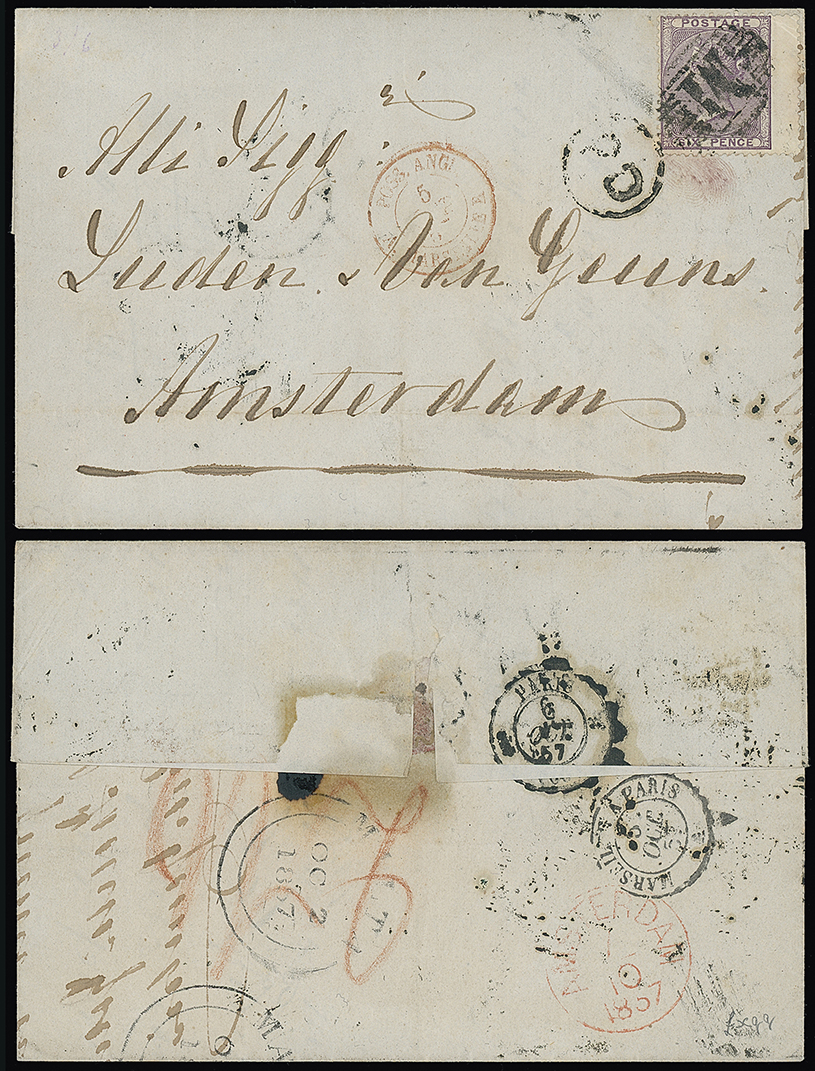 POSTAGE
SIX PENCE
Alli Sigg:ri
POSS. ANG.
5
P.D.
Luden & Van Geuns.
Amsterdam
PARIS
6
OCT.
57
A PARIS
OCT.
MARSEILLE
MALTA
OC 2
1857
AMSTERDAM
10
1857
MA